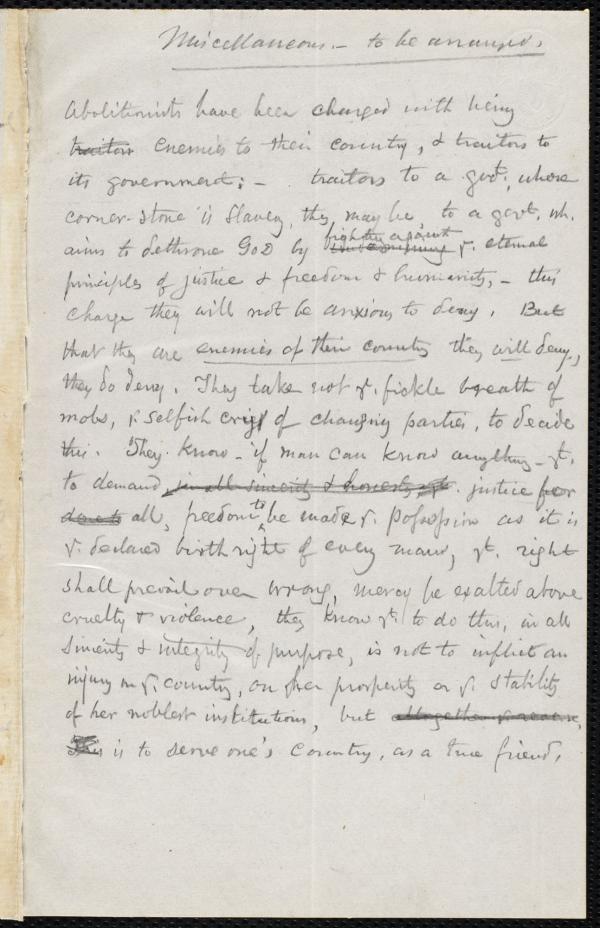 Miscellaneous. – to be arranged.
Abolitionists have been charged with being
traitors enemies to their country, & traitors to
its government; – traitors to a govt., whose
corner-stone is Slavery, they may be to a govt. wh.
aims to dethrone God by fighting against ye. eternal
principles of justice & freedom & humanity, – this
charge they will not be anxious to deny. But
that they are enemies of their country they will deny,
they do deny. They take not ye. fickle breath of
mobs, ye. selfish cries of changing parties, to decide
this. They know – if man can know anything – yt.
to demand, in all sincerity & honesty, yt. justice for
done to all, freedom to be made ye. possession as it is
ye. declared birthright of every man, yt. right
shall prevail over wrong, mercy be exalted above
cruelty & violence, they know yt. to do this, in all
sincerity & integrity of purpose, is not to inflict an
injury on ye. country, on her prosperity or ye. stability
of her noblest institutions, but altogether ye. reverse,
is to serve one's Country, as a true friend.